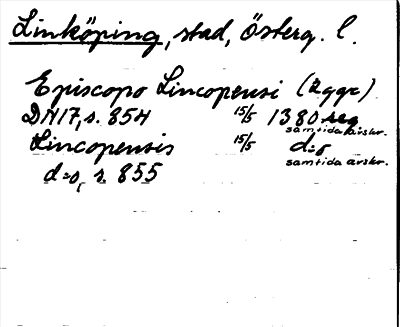 Linköping, stad, Österg. l.
Episcopo Lincopensi (2 ggr)
DN 17, s. 854 15/5 1380
samtida avskr.
Lincopensis 15/5 d:o
samtida avskr.
d:o, s. 855